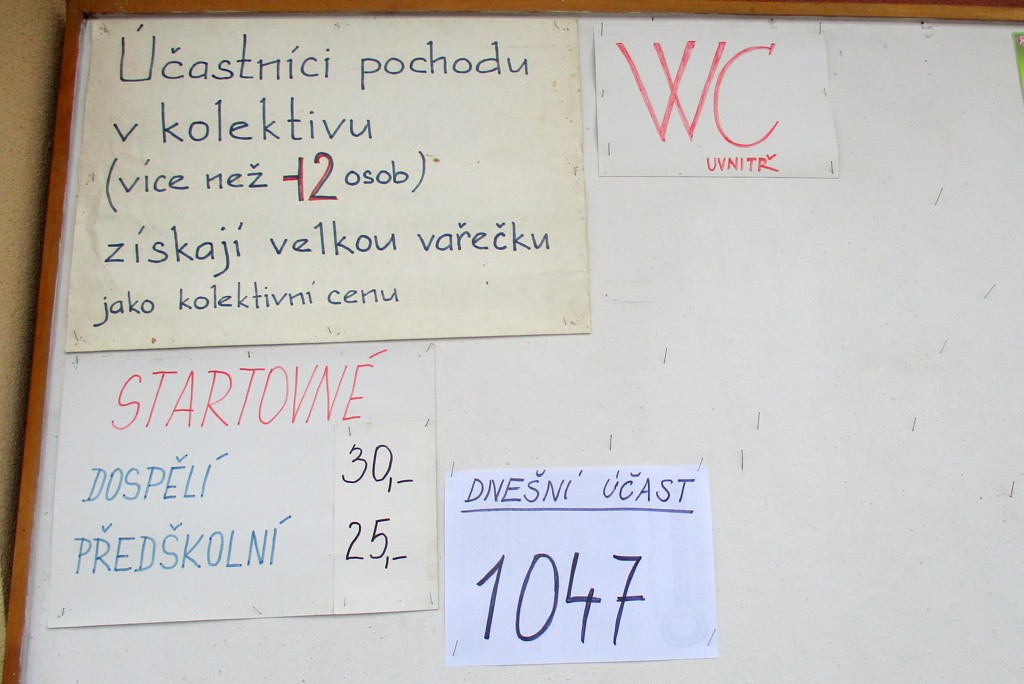 Účastníci pochodu
v kolektivu
(více než 12 osob)
získají velkou vařečku
jako kolektivní cenu
WC
UVNITŘ
STARTOVNÉ
DOSPĚLÍ 30,-
PŘEDŠKOLNÍ 25,-
DNEŠNÍ ÚČAST
1047